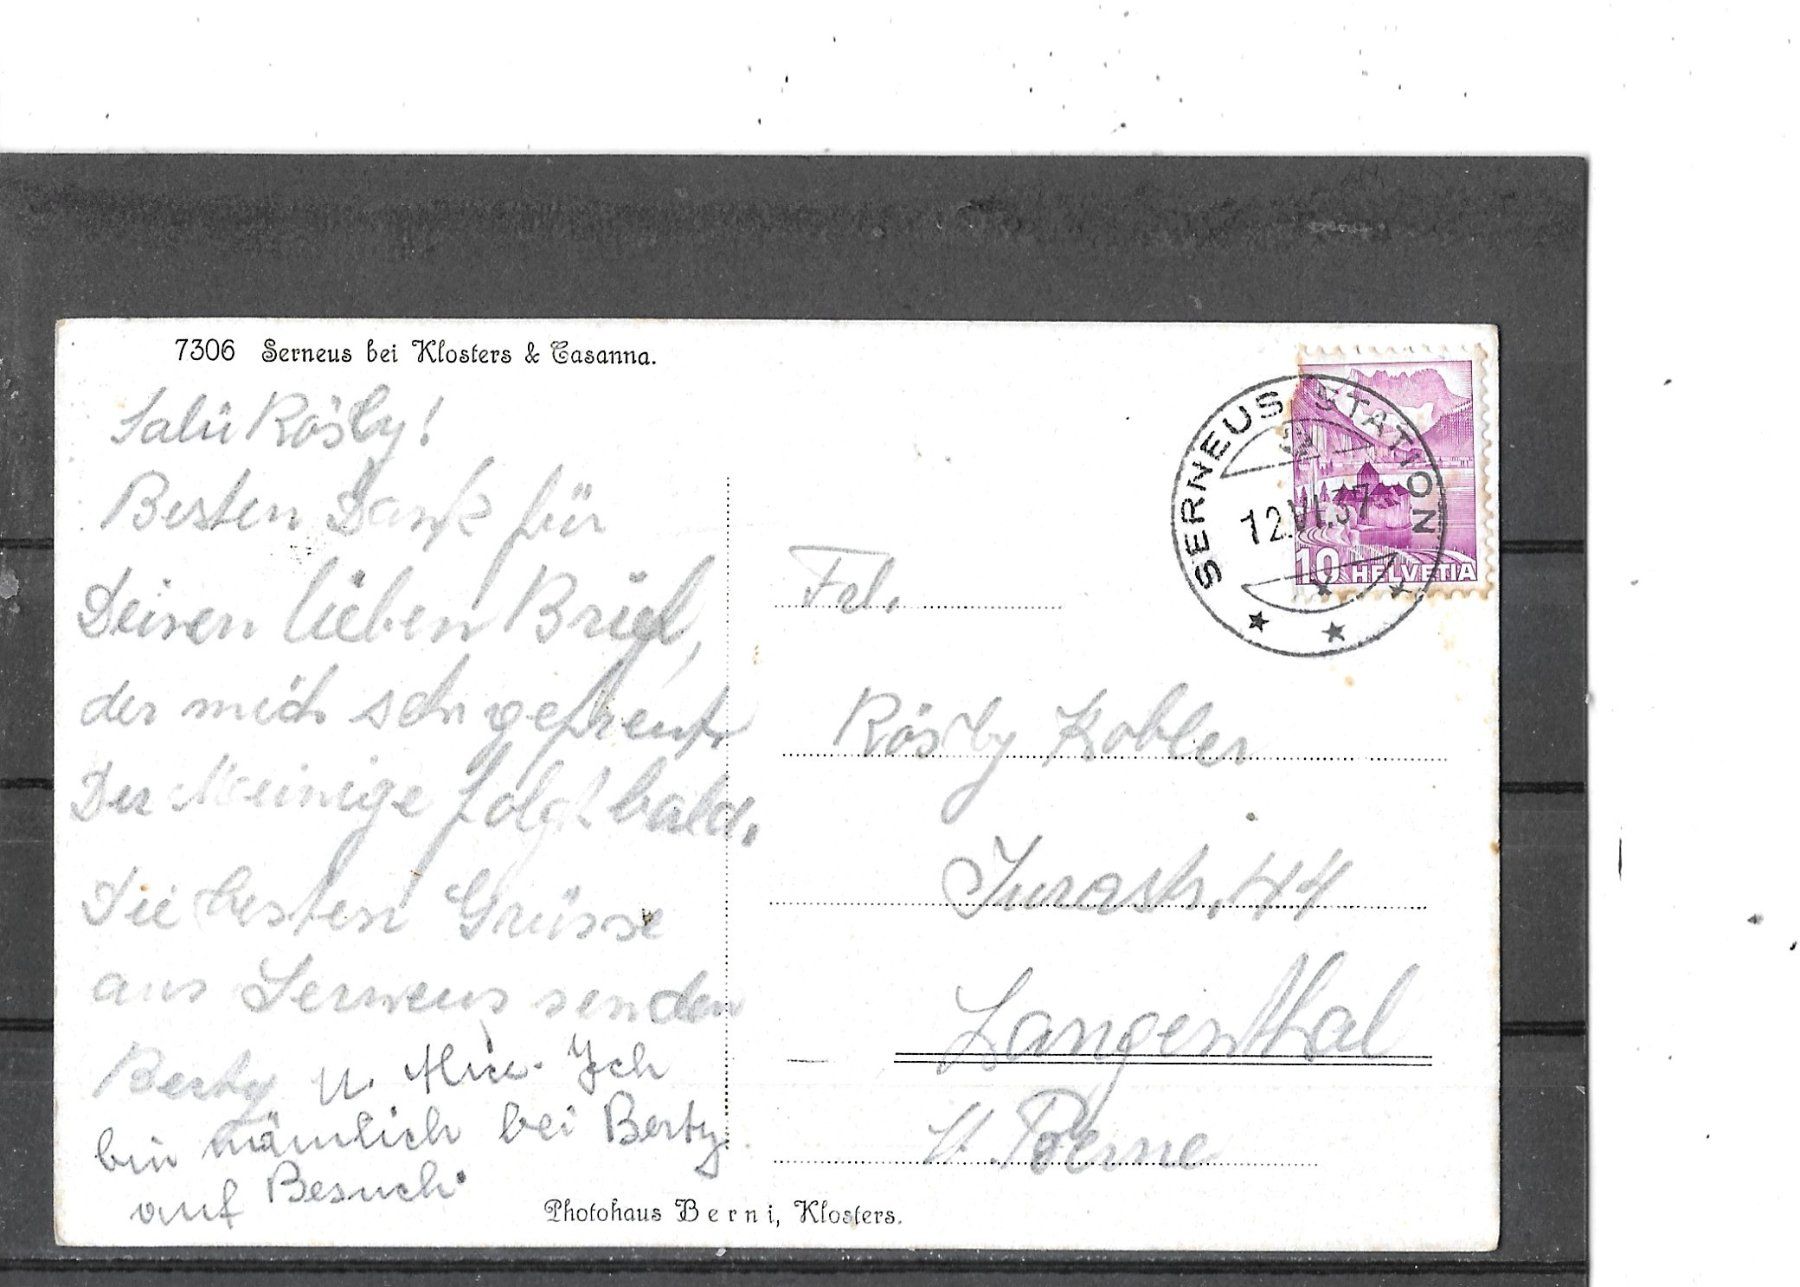 7306 Serneus bei Klosters & Casanna.
Salü Rösly!
Besten Dank für
Deinen lieben Brief,
der mich sehr gefreut.
Der Meinige folgt bald.
Die besten Grüsse
aus Serneus senden
Berty u. Ich
bin nämlich bei Berty
auf Besuch.
Photohaus Berni, Klosters.
SERNEUS STATION
12.VI.37
10 HELVETIA
Frl.
Rösly Kobler
Jurastr. 44
Langenthal
Berne